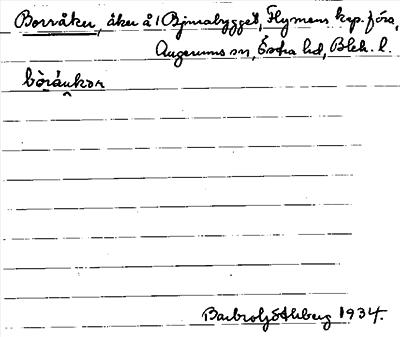 Borråker, åker å Björsabygget, Flymens kap. förs.,
Augerums sn, Östra hd, Blek. l.
bòrå̀nkər
Barbro Göthberg 1934.